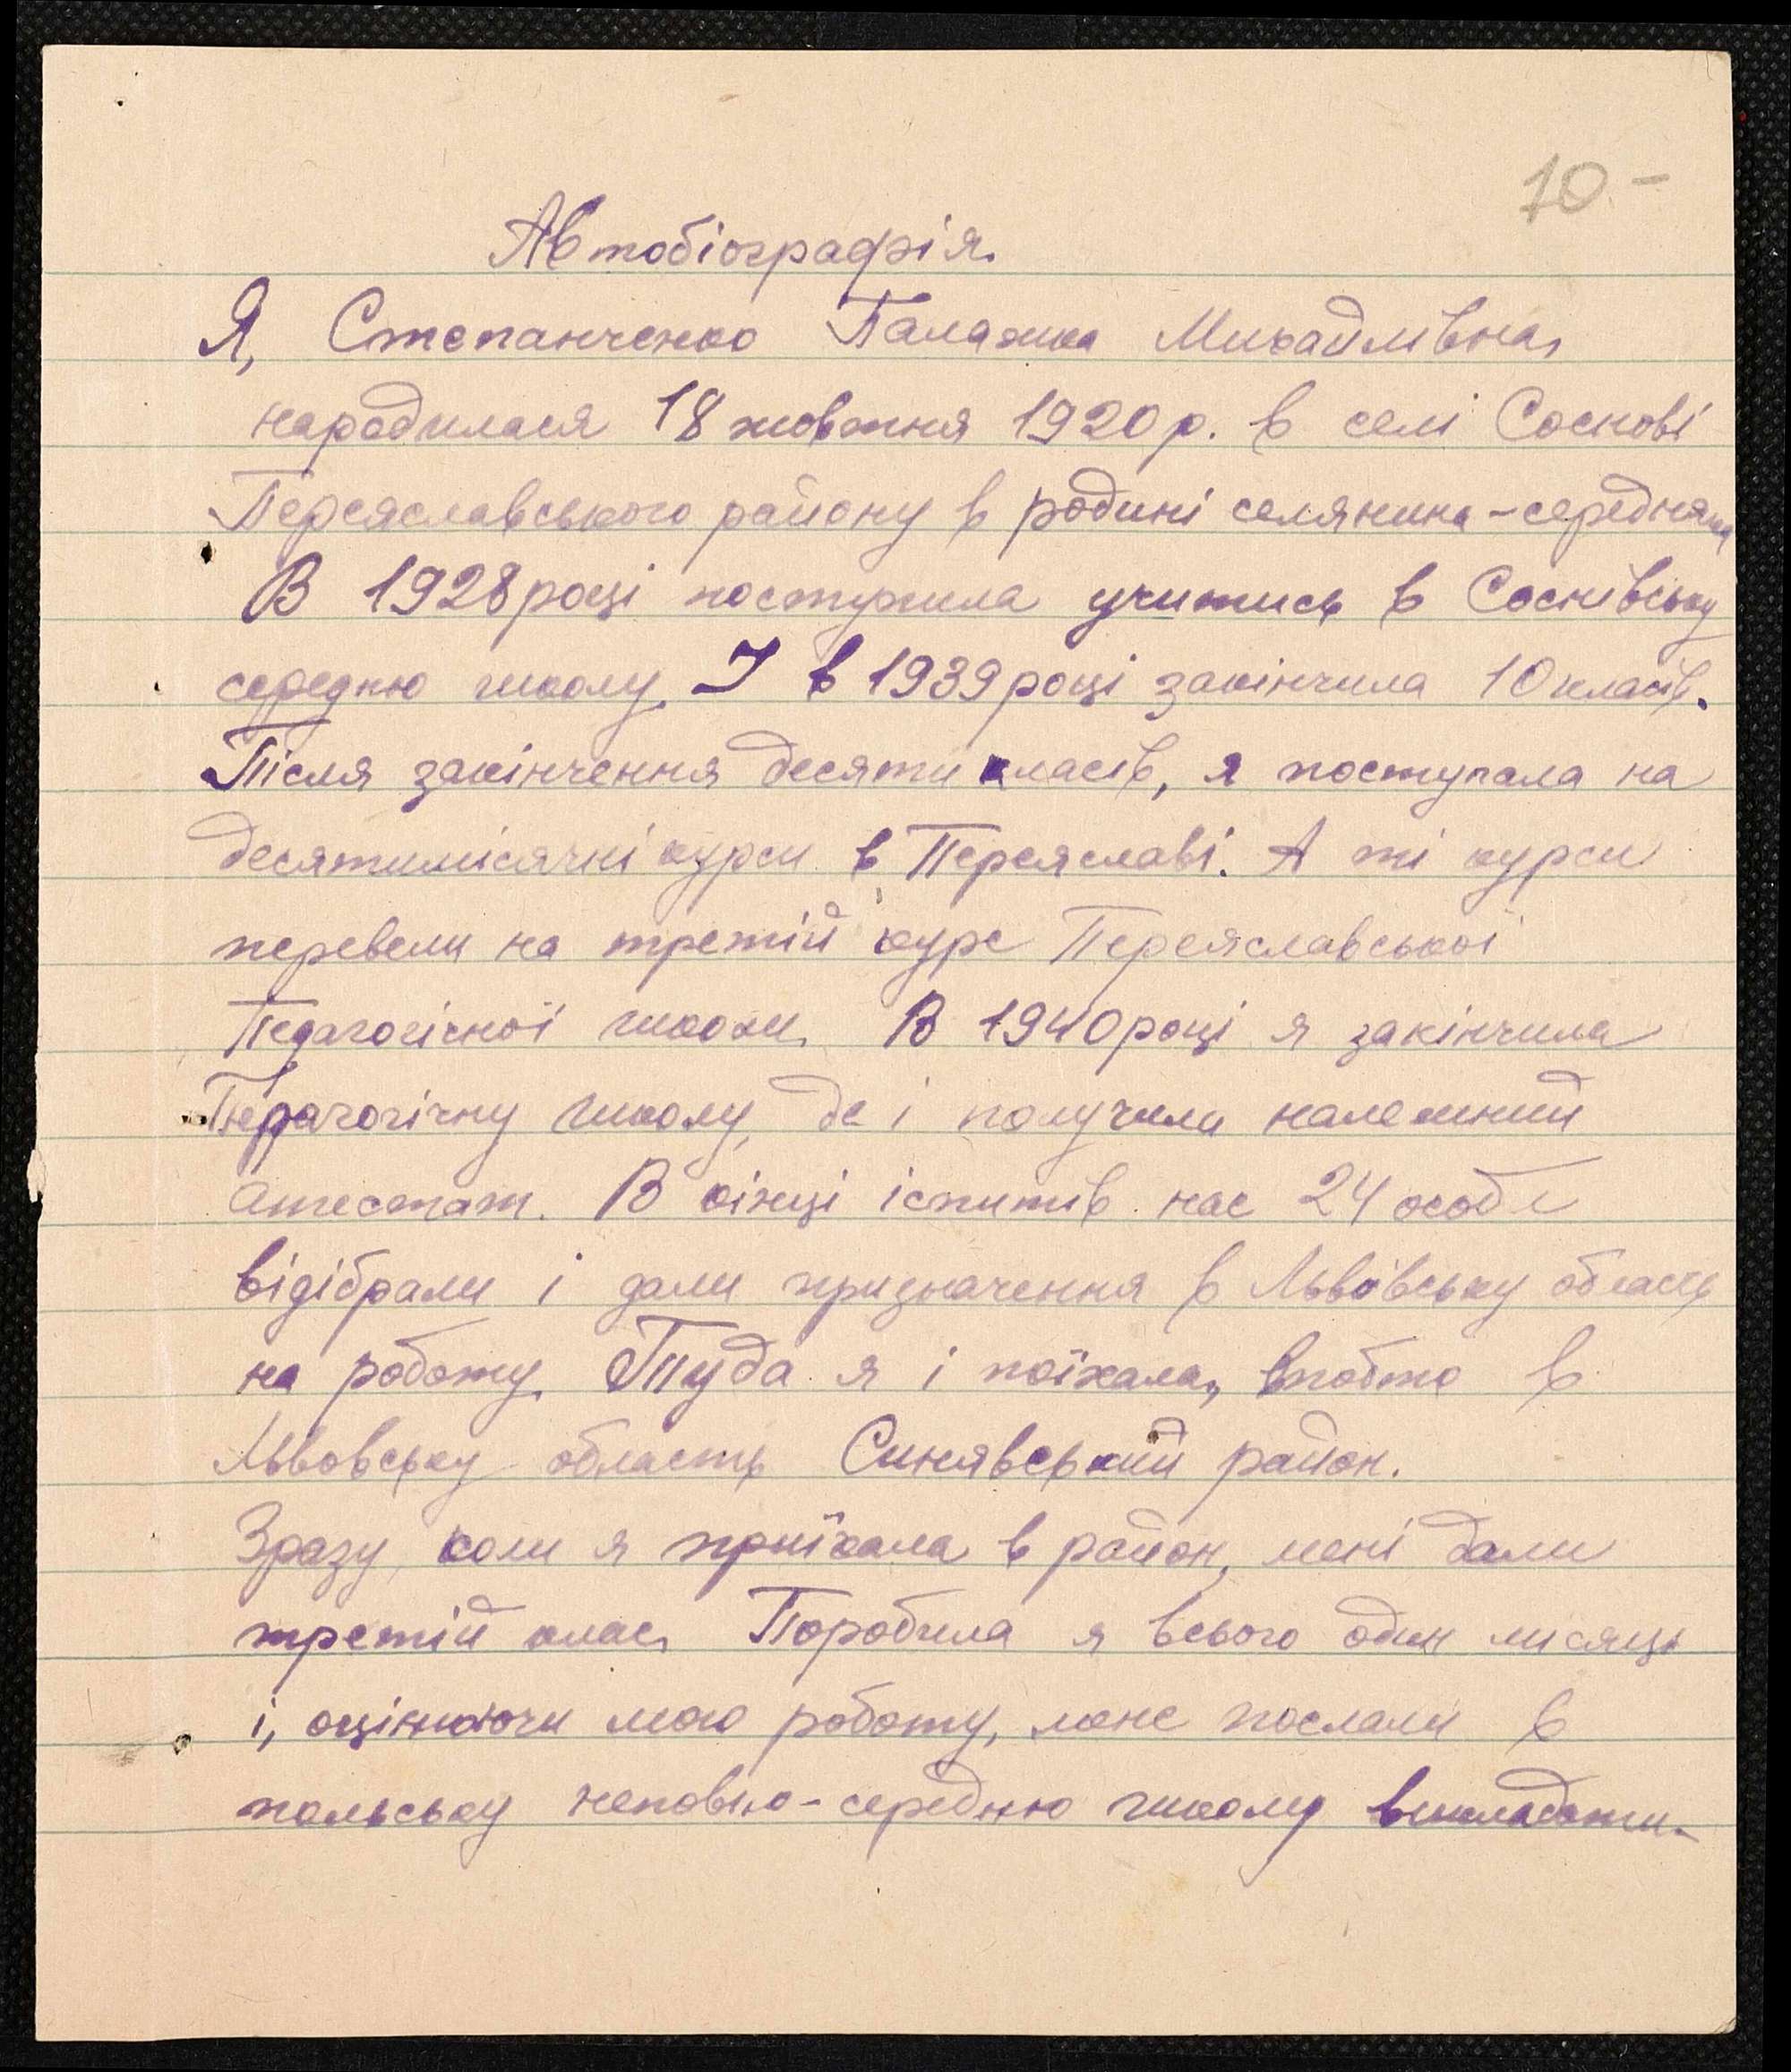 10-
Автобіографія.
Я, Степанченко Палажка Михайлівна,
народилася 18 жовтня 1920 р. в селі Соснові
Переяславського району в родині селянина-середняка
В 1928 році поступила учитись в Соснівську
середню школу. І в 1939 році закінчила 10 класів.
Після закінчення десяти класів, я поступала на
десятимісячні курси в Переяславі. А ті курси
перевели на третій курс Переяславської
Педагогічної школи. В 1940 році я закінчила
Педагогічну школу, де і получили належний
атестат. В кінці іспитів нас 24 особи
відібрали і дали призначення в Львівську область
на роботу. Туда я і поїхала, в
Львовську область Синявський район.
Зразу, коли я приїхала в район, мені дали
третій клас. Поробила я всього один місяць
і, оцінюючи мою роботу, мене послали в
польську неповно-середню школу викладати-